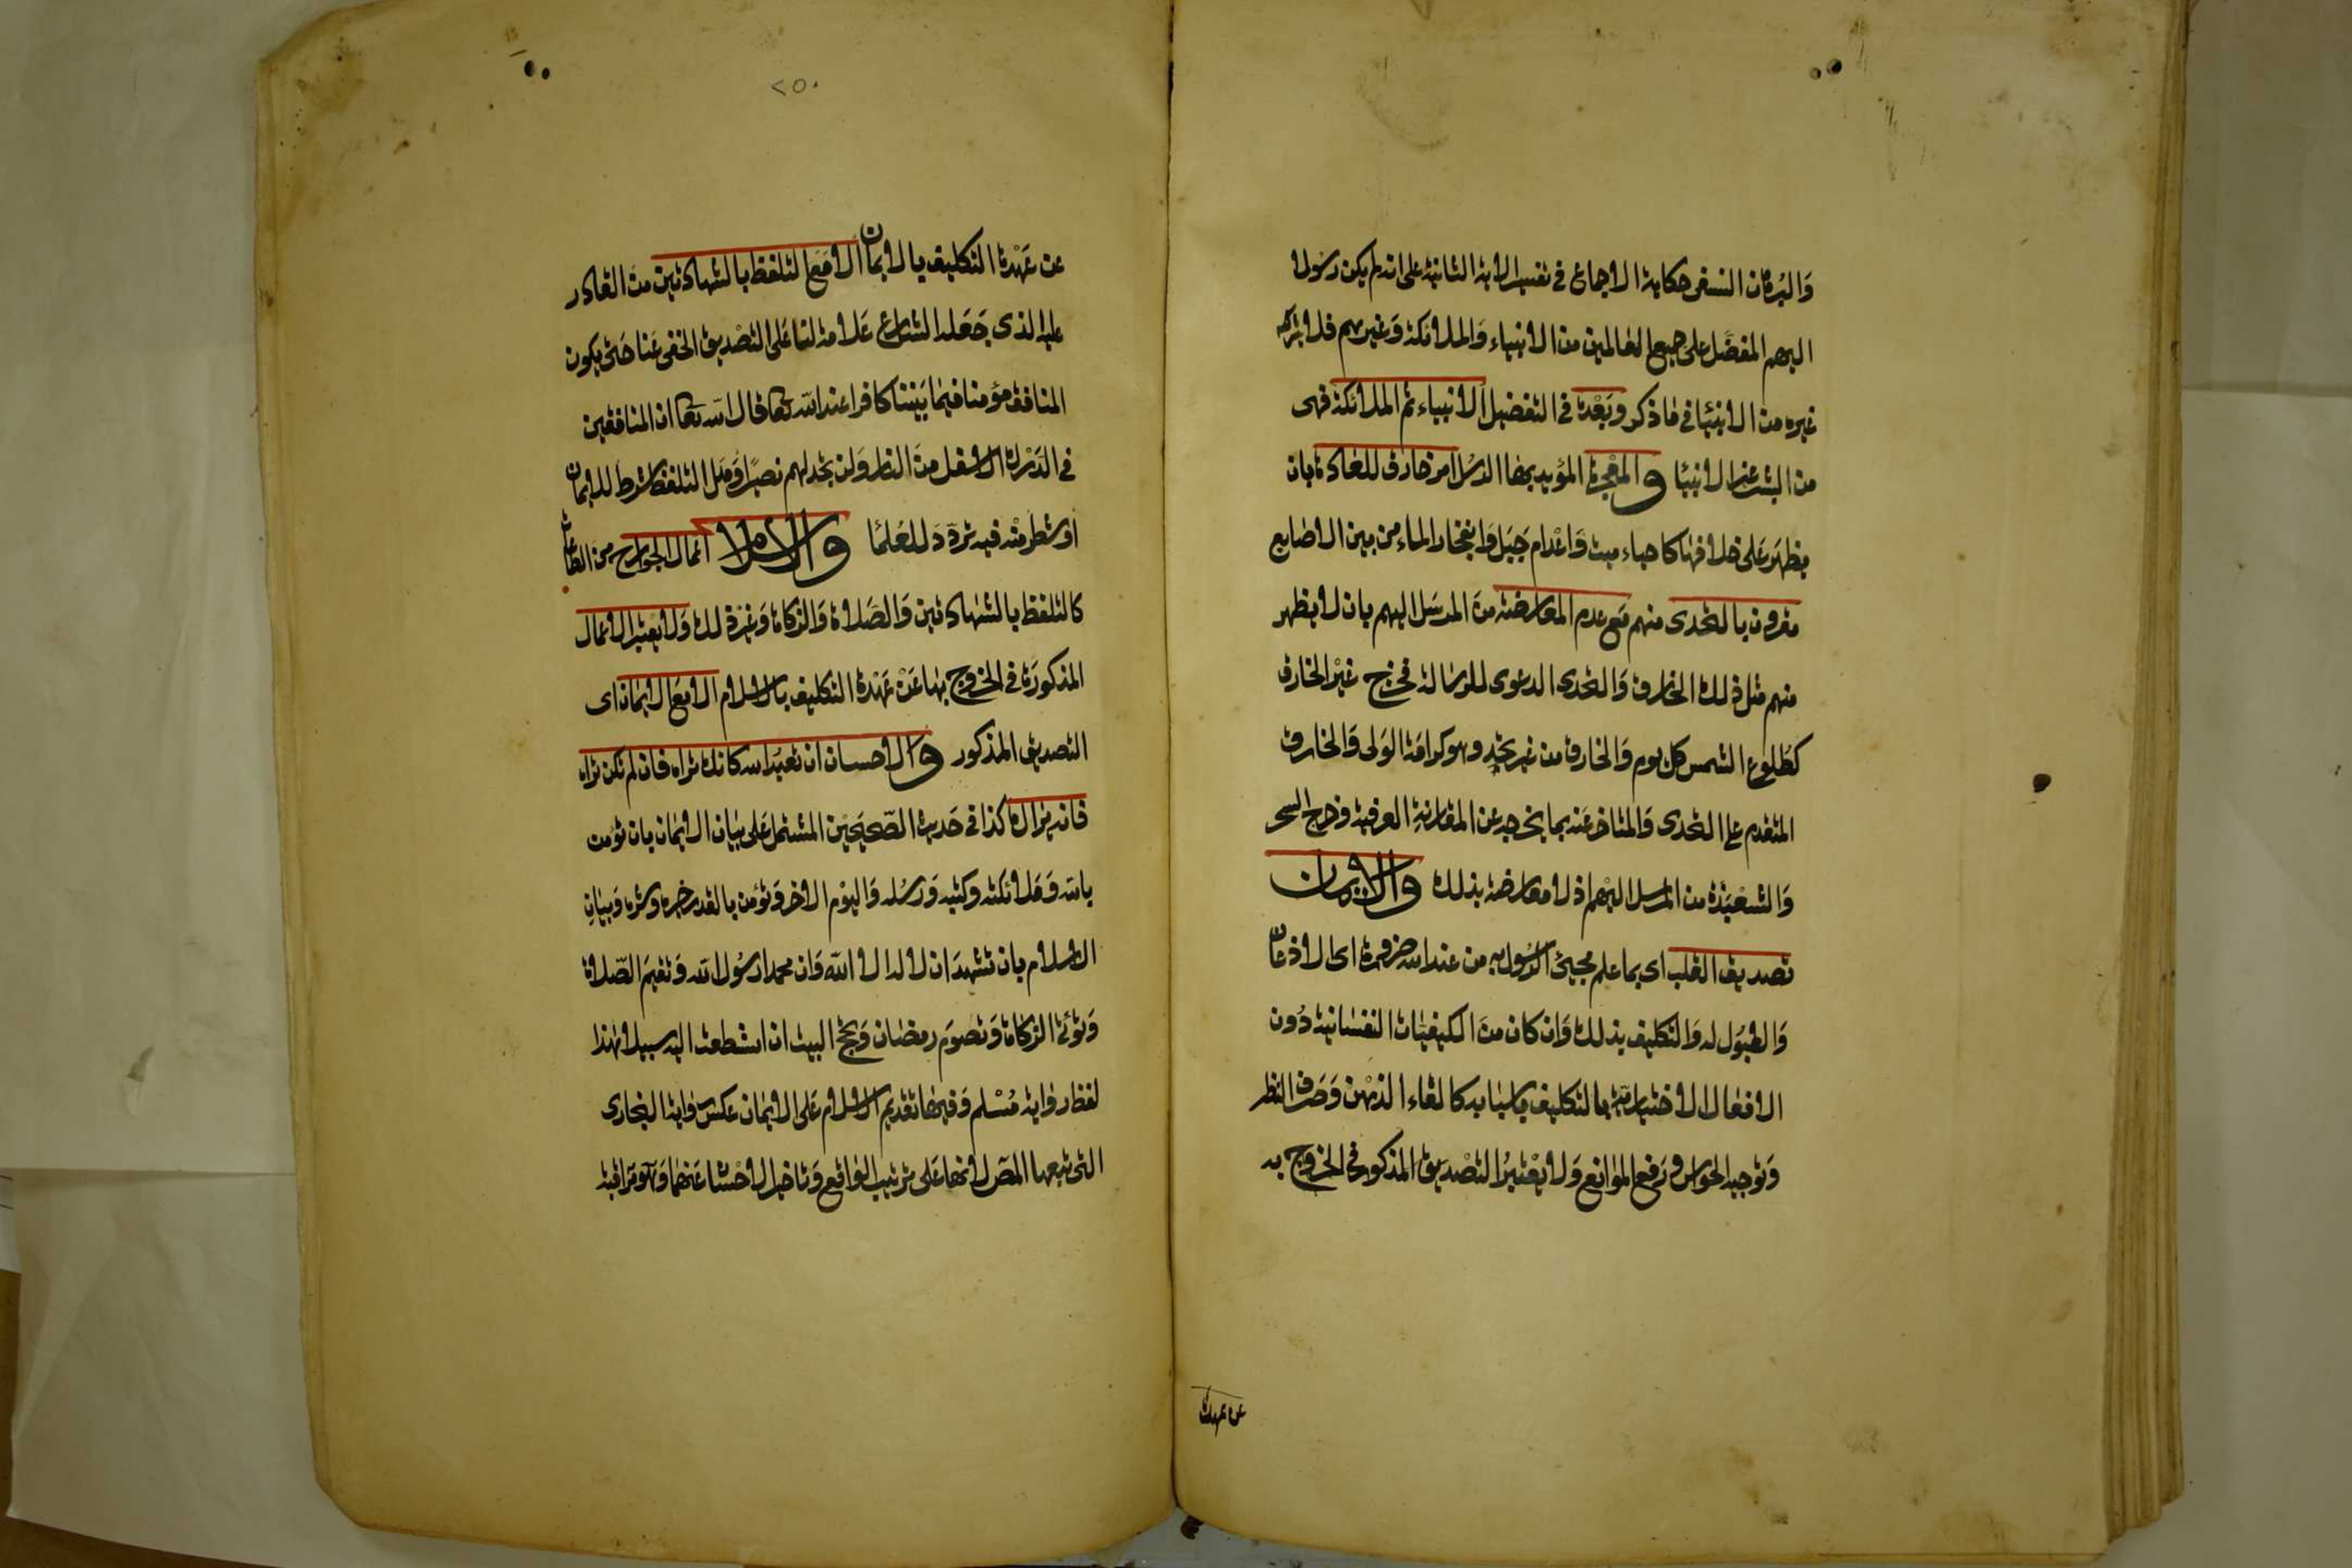 وَالبُرهان النسفى حكاية الاجماع فى تفسير الاية الثانية على انه لم يكن رسولا
اليهم المفضّل على جميع العالمين من الانبياء وَالملائكة وَغيرهم فلا يشركه
غيره من الانبيا فى ما ذكر وبَعْده فى التفضيل الانبياء ثم الملائكة فهى
من البشر غير الانبيا والمعْجزة المؤيد بها الرسُل امر خارق للعادة بان
يظهَر عَلى خلافها كاحياء ميت وَاعْدام جبَل وَانفجار الماء من بين الاصابع
مقرون بالتحدى منهم مَع عدم المعارضة منَ المرسَل اليهم بان لا يظهر
منهم مثل ذلك الخارق وَالتحدى الدعوى للرسَالة فخرج غيْر الخارق
كطُلوع الشمس كل يوم وَالخارق من غير تحدٍ وهو كرامَة الوَلى وَالخارق
المتقدم على التحدى وَالمتاخر عَنه بما يخرجه عن المقارنة العرفية وخرج السحر
وَالشعْبَذة من المرسل اليْهم اذ لا معارضة بذلك والايمان
تصديق القلب اى بما علم مجيئ الرسُول به من عند الله ضرورة اى الاذعان
وَالقبُول له وَالتكليف بذلك وَان كان منَ الكيفيات النفسَانية دُون
الافعَال الاختيارية بالتكليف باسبَابه كالقاء الذهْن وَصَرف النظر
وَتوجيه الحوَاس وَرَفع الموَانع وَلا يعْتبرُ التصْديق المذكور فى الخرُوج به
عن عهدة
٢٥٠
عن عَهْدة التكليف بالايمان الا مَع التلفظ بالشهادتين منَ القادر
عليه الذى جَعَله الشارع عَلامة لنا عَلى التصْديق الخفى عَنا حَتى يكون
المنافق مؤمنا فيما بيَننا كافرا عند الله تعا قال الله تعا ان المنافقين
فى الدَرْك الاسفل منَ النار وَلن تجد لهم نصيرا وَهَل التلفظ شرط للايمان
اوشطر منْه فيه تردّد للعُلمَا والاسلام اعمال الجوارح من الطاعات
كالتلفظ بالشهادتين وَالصَّلاة وَالزكاة وَغيْر ذلك وَلا تعْتبر الاعمال
المذكورَة فى الخرُوج بها عَنْ عَهْدة التكليف بالاسلام الا مَع الايمان اى
التصديق المذكور والاحسان ان تعبُد الله كانك تراه فان لم تكن تراه
فانه يراك كذا فى حَديث الصّحيحَيْن المشتمل عَلى بيَان الايمان بان تؤمن
بالله وَمَلائكته وكتبه وَرسُله وَاليوْم الاخر وَتؤمن بالقدر خيره وشره وَبيَان
الاسلام بان تشهدَ ان لا اله الا الله وَان محمدا رسُول الله وَتقيمَ الصّلاة
وَتؤتىَ الزكاة وَتصومَ رمضَان وَتحج البيت ان استطعت اليه سبيلا هٰذا
لفظ روَاية مُسْلم وَفيهَا تقديم الاسلام عَلى الايمَان عكس روَاية البخارى
التى تبعهَا المصَ لانهَا عَلى ترتيب الوَاقع وَتاخير الاحْسَان عَنهما وَهوَ مرَاقبة